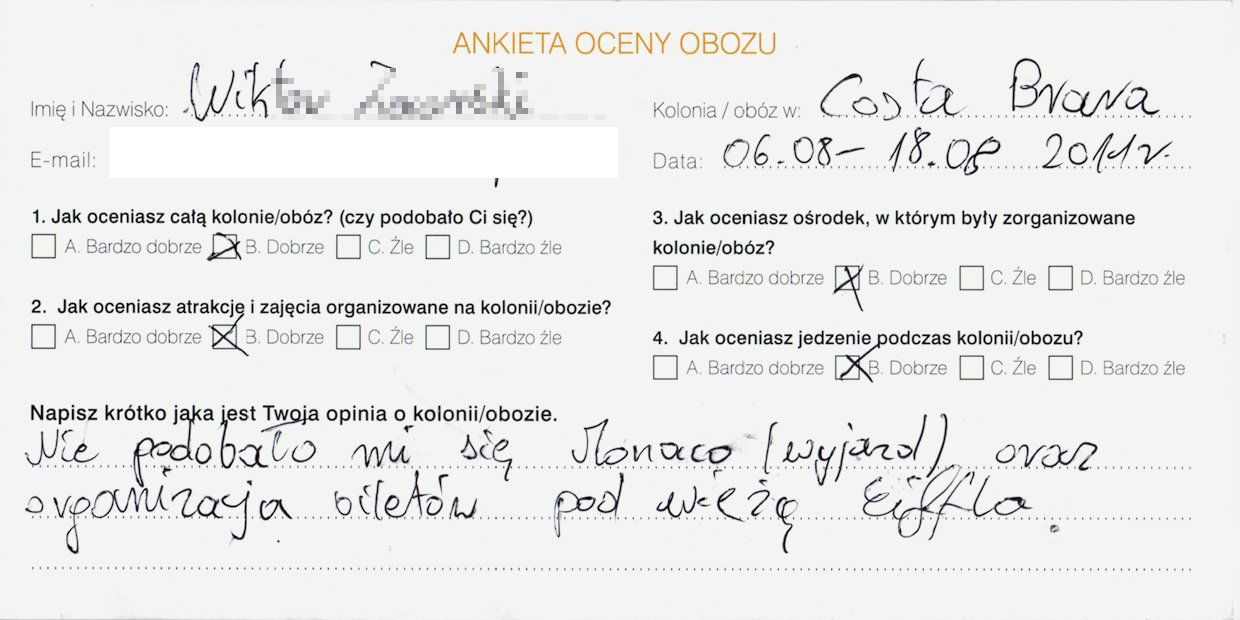 ANKIETA OCENY OBOZU
Imię i Nazwisko: Wiktor
Kolonia / obóz w: Costa Brava
E-mail:
Data: 06.08 - 18.08 2011r.
1. Jak oceniasz całą kolonie/obóz? (czy podobało Ci się?)
A. Bardzo dobrze B. Dobrze C. Źle D. Bardzo źle
2. Jak oceniasz atrakcję i zajęcia organizowane na kolonii/obozie?
A. Bardzo dobrze B. Dobrze C. Źle D. Bardzo źle
3. Jak oceniasz ośrodek, w którym były zorganizowane
kolonie/obóz?
A. Bardzo dobrze B. Dobrze C. Źle D. Bardzo źle
4. Jak oceniasz jedzenie podczas kolonii/obozu?
A. Bardzo dobrze B. Dobrze C. Źle D. Bardzo źle
Napisz krótko jaka jest Twoja opinia o kolonii/obozie.
Nie podobało mi się Monaco (wyjazd) oraz
organizacja biletów pod wieżą Eiffla.